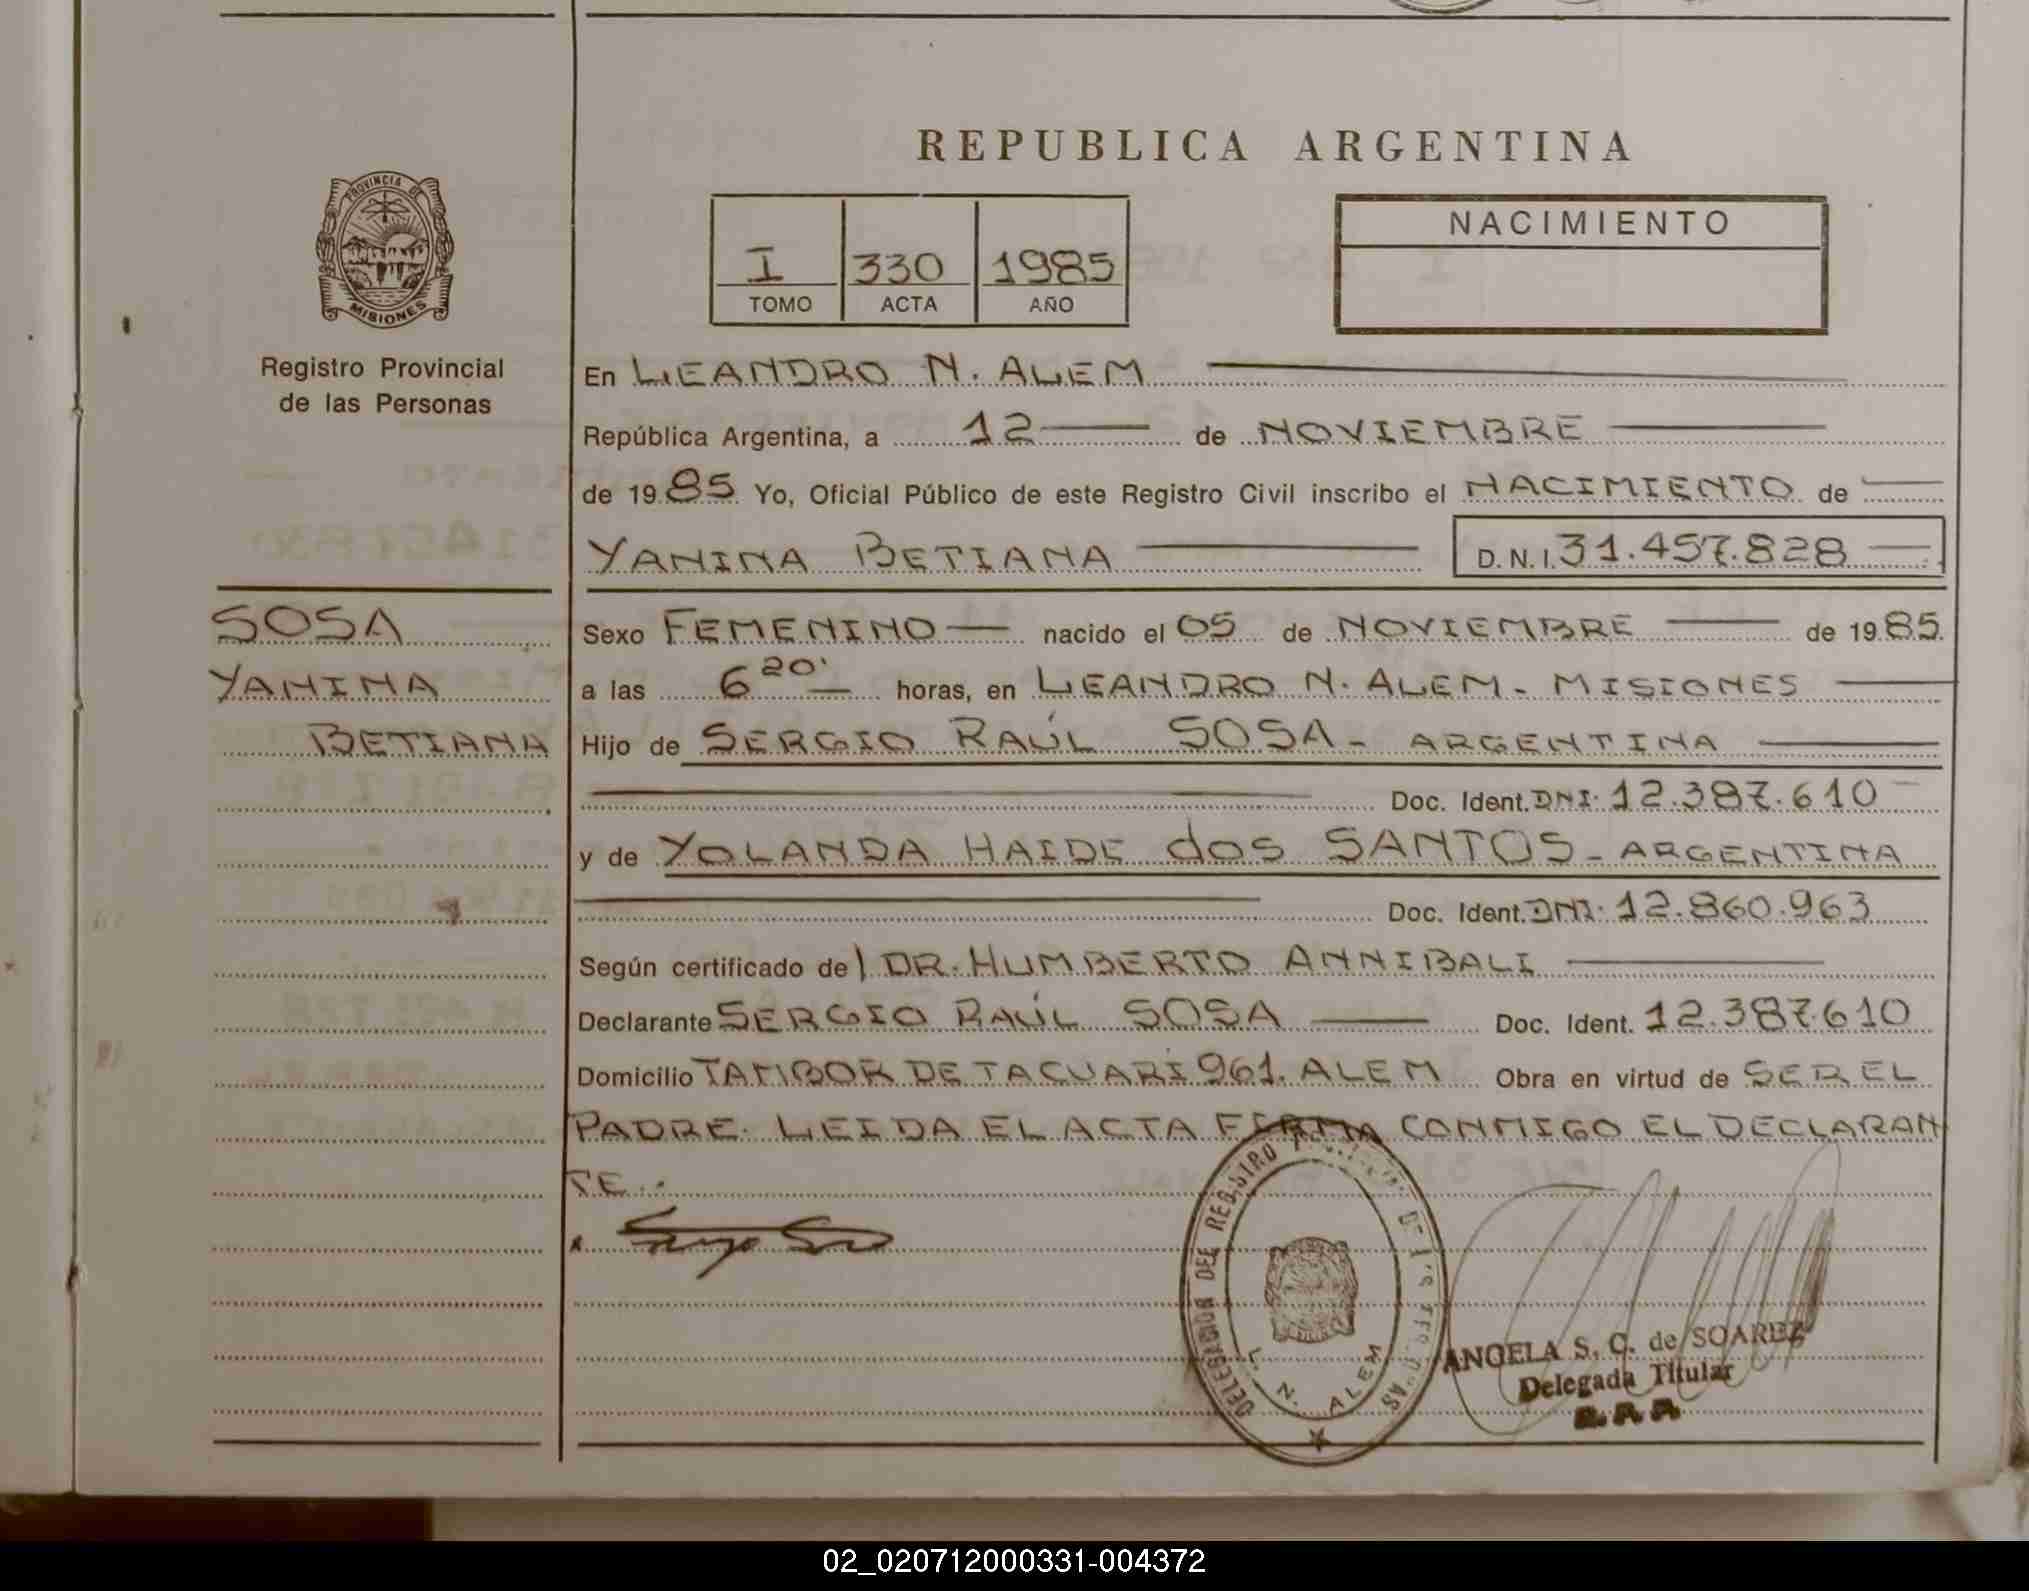 REPUBLICA ARGENTINA
PROVINCIA DE
MISIONES
Registro Provincial
de las Personas
I 330 1985
TOMO ACTA AÑO
NACIMIENTO
En LEANDRO N. ALEM
República Argentina, a 12 de NOVIEMBRE
de 1985 Yo, Oficial Público de este Registro Civil inscribo el NACIMIENTO de
YANINA BETIANA D.N.I. 31.457.828
SOSA
YANINA
BETIANA
Sexo FEMENINO nacido el 05 de NOVIEMBRE de 1985.
a las 6 20' horas, en LEANDRO N. ALEM - MISIONES
Hijo de SERGIO RAÚL SOSA - ARGENTINA
Doc. Ident. DNI. 12.387.610
y de YOLANDA HAIDE dos SANTOS - ARGENTINA
Doc. Ident. DNI. 12.860.963
Según certificado de DR. HUMBERTO ANNIBALI
Declarante SERGIO RAÚL SOSA Doc. Ident. 12.387.610
Domicilio TAMBOR DE TACUARÍ 961. ALEM Obra en virtud de SER EL
PADRE. LEIDA EL ACTA FIRMA CONMIGO EL DECLARAN
TE.
DELEGACION DEL REGISTRO DE LAS
L. N. ALEM
ANGELA S. C. de SOAREZ
Delegada Titular
02_020712000331-004372